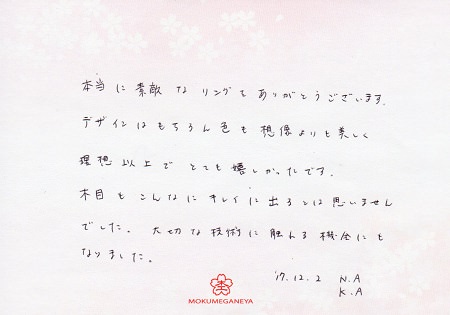 本当に素敵なリングをありがとうございます.
デザインはもちろん色も想像よりも美しく
理想以上でとても嬉しかったです.
木目もこんなにキレイに出るとは思いません
でした。大切な技術に触れる機会にも
なりました。
'17.12.2 N.A
K.A
MOKUMEGANEYA